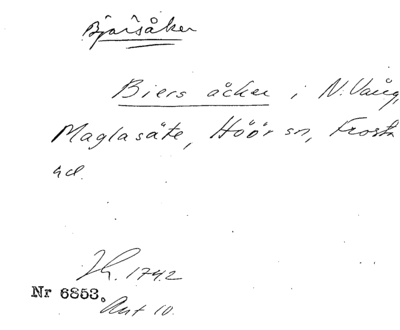 Bjärsåker
Biers åcker i N. Vång,
Maglasäte, Höör sn, Frosta
hd.
Lh. 1742
Nr 6853.
Akt 10.